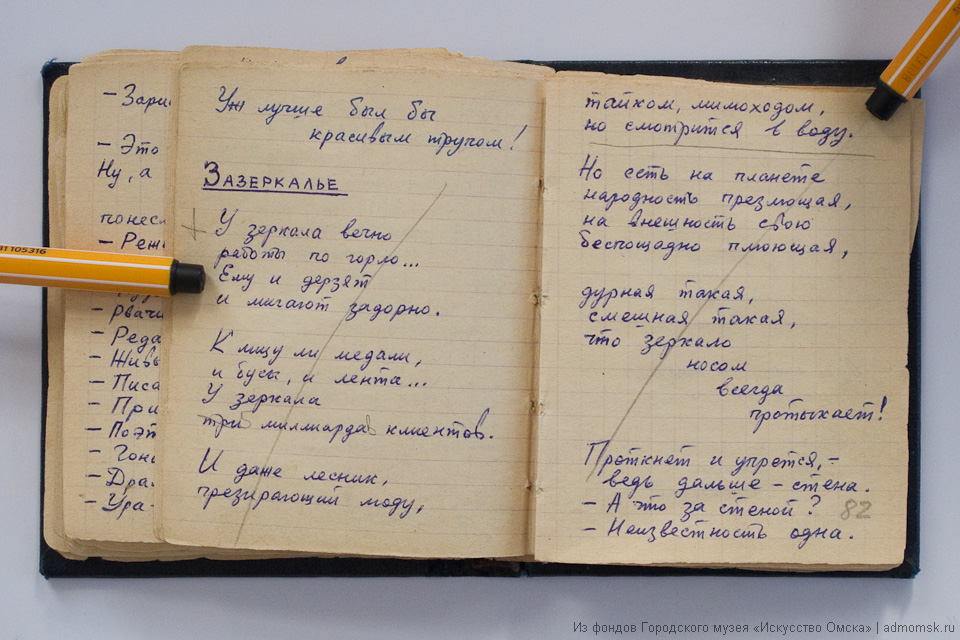 - Зари
- Это
Ну, а
понесл
- Реж
- рвачи
- Реда
- Живь
- Писа
- При
- Поэт
- Гонс
- Дра
- Ура
Уж лучше был бы
красивым трутом!
ЗАЗЕРКАЛЬЕ
У зеркала вечно
работы по горло...
Ему и дерзят
и мигают задорно.
К лицу ли медали,
и бусы, и лента...
У зеркала
три миллиарда клиентов.
И даже лесник,
презирающий моду,
тайком, мимоходом,
но смотрится в воду.
Но есть на планете
народность презмощая,
на внешность свою
беспощадно плюющая,
дурная такая,
смешная такая,
что зеркало
носом
всегда
протыкает!
Проткнёт и упрётся, -
ведь дальше - стена.
- А что за стеной?
- Неизвестность одна.
82
11 105316
Из фондов Городского музея «Искусство Омска» | admomsk.ru